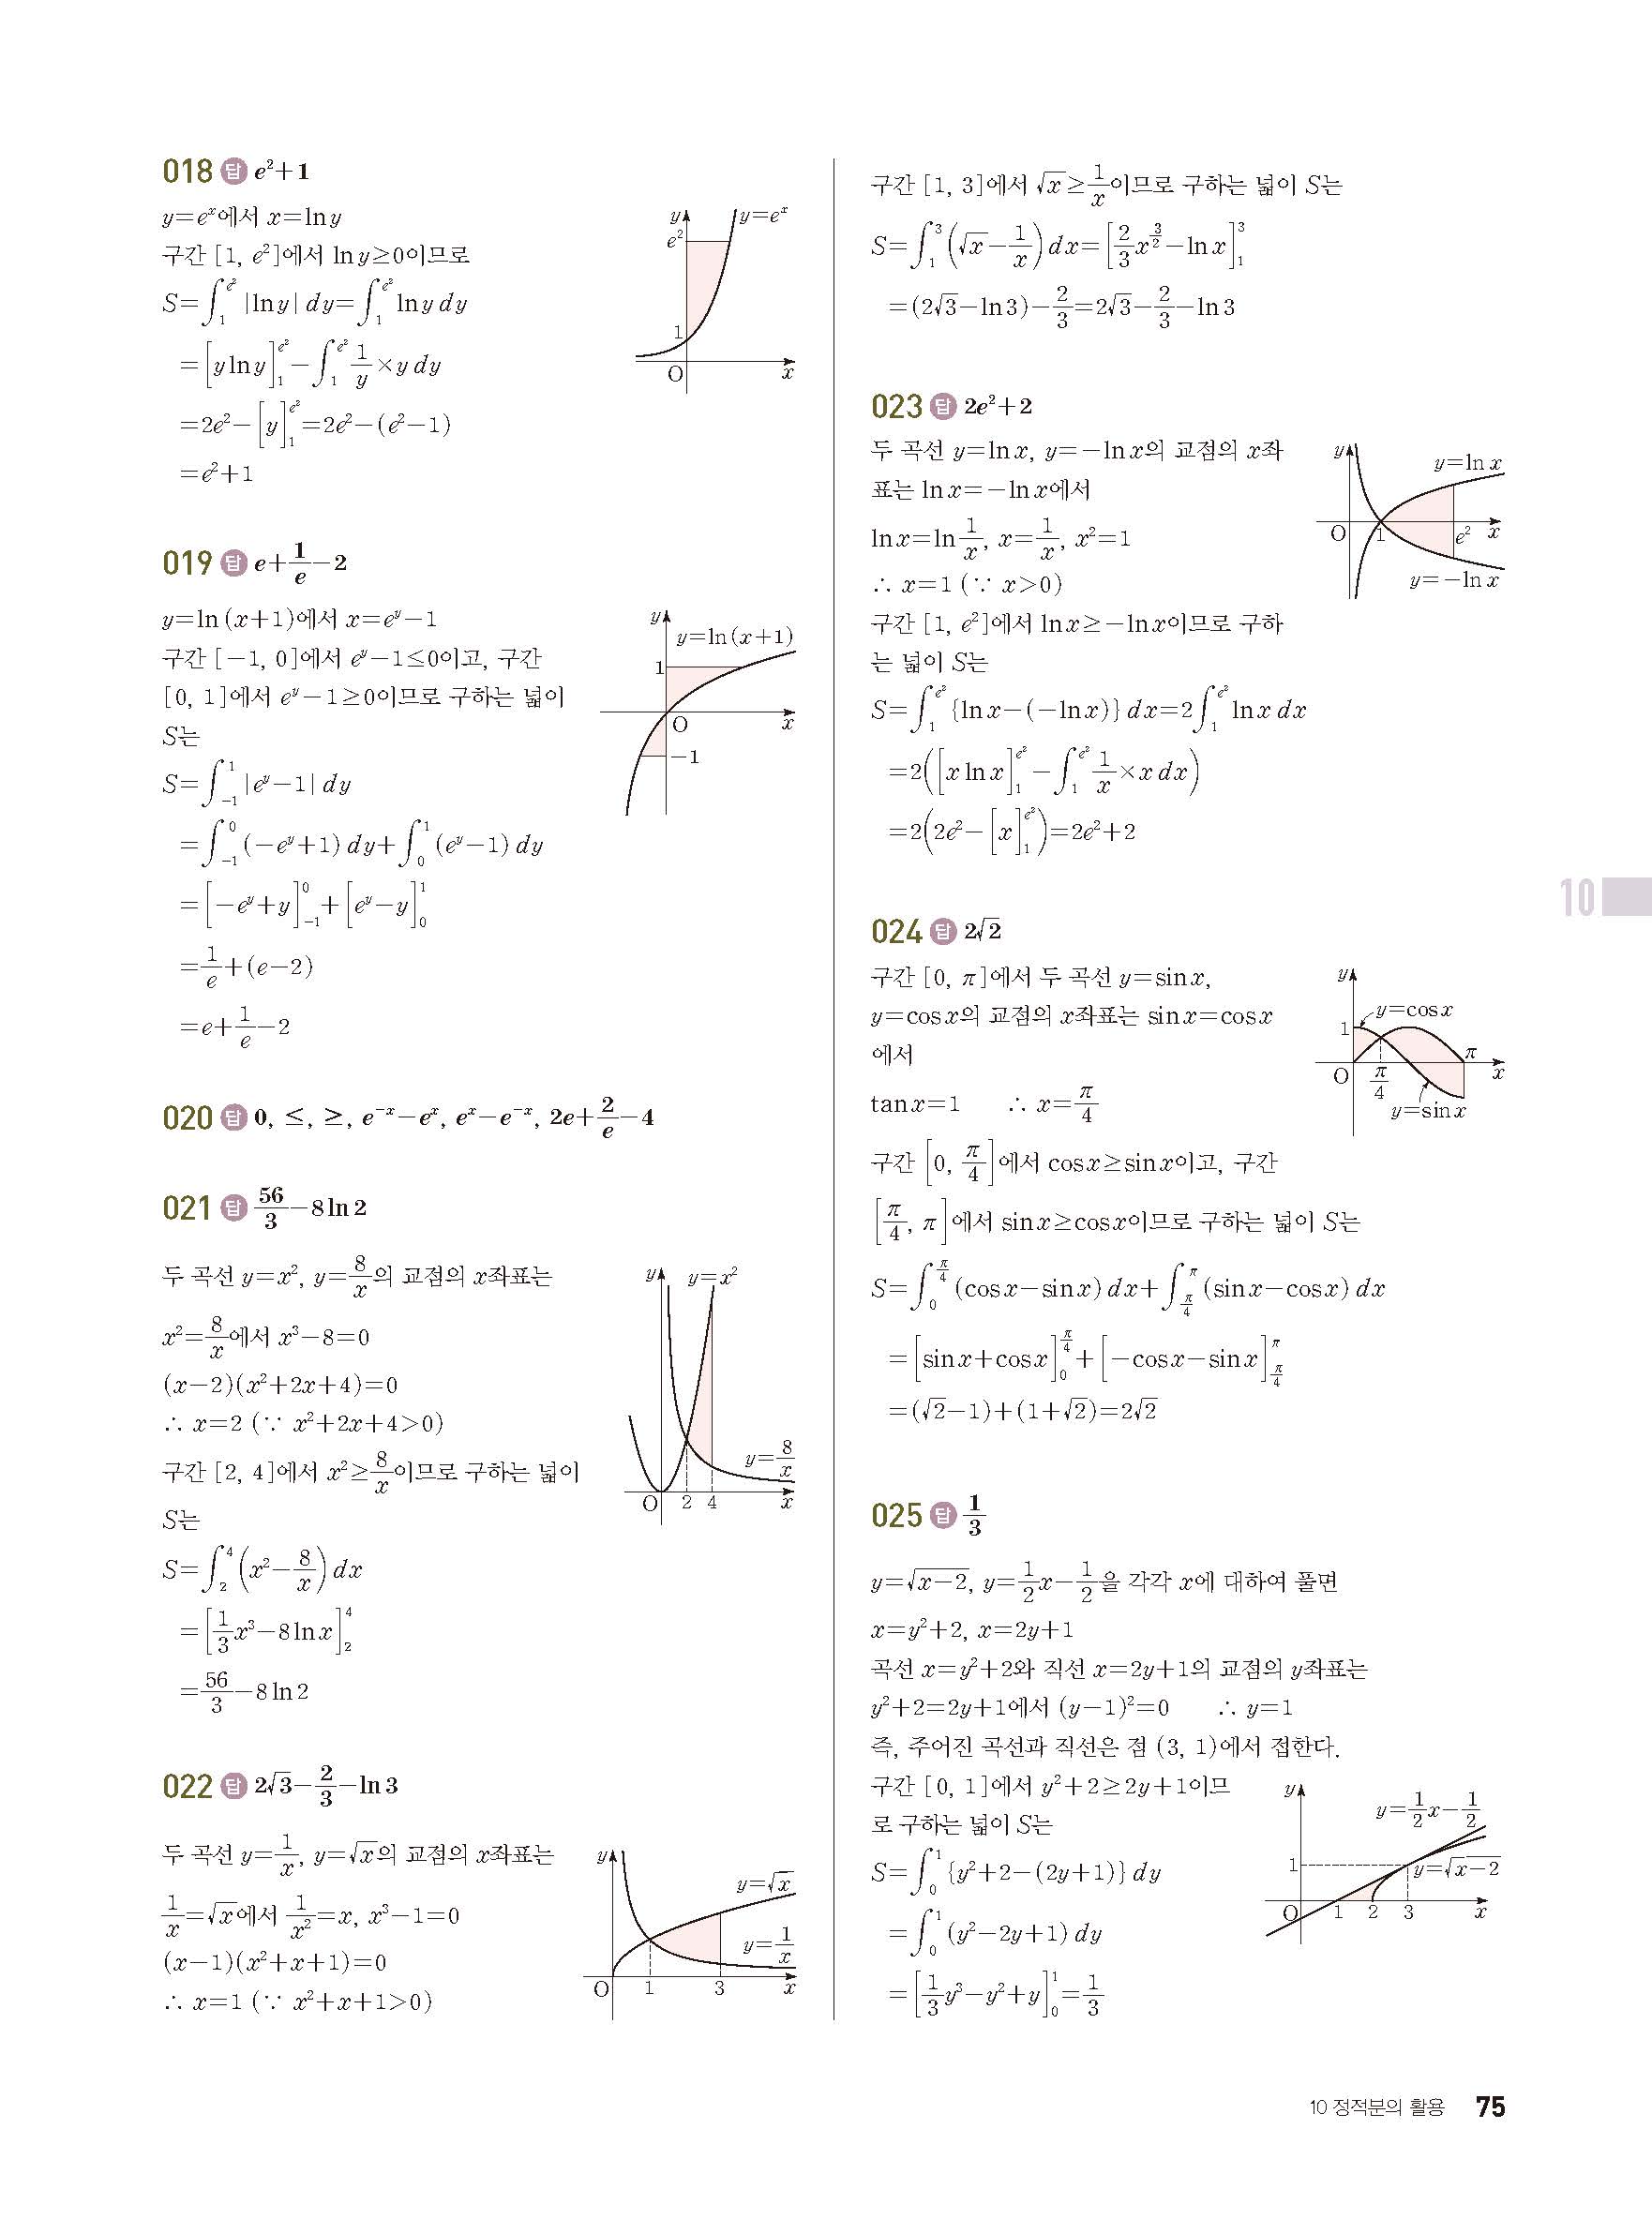 018 답 e²+1
y=eˣ에서 x=ln y
구간 [1, e²]에서 ln y≥0이므로
S=∫₁^{e²} |ln y| dy=∫₁^{e²} ln y dy
=[y ln y]₁^{e²}-∫₁^{e²} 1/y×y dy
=2e²-[y]₁^{e²}=2e²-(e²-1)
=e²+1
y
y=eˣ
e²
1
O
x
019 답 e+1/e-2
y=ln(x+1)에서 x=e^y-1
구간 [-1, 0]에서 e^y-1≤0이고, 구간
[0, 1]에서 e^y-1≥0이므로 구하는 넓이
S는
S=∫₋₁^1 |e^y-1| dy
=∫₋₁^0 (-e^y+1) dy+∫₀^1 (e^y-1) dy
=[-e^y+y]₋₁^0+[e^y-y]₀^1
=1/e+(e-2)
=e+1/e-2
y
y=ln(x+1)
1
O
x
-1
020 답 0, ≤, ≥, e^{-x}-e^x, e^x-e^{-x}, 2e+2/e-4
021 답 56/3-8 ln 2
두 곡선 y=x², y=8/x의 교점의 x좌표는
x²=8/x에서 x³-8=0
(x-2)(x²+2x+4)=0
∴ x=2 (∵ x²+2x+4>0)
구간 [2, 4]에서 x²≥8/x이므로 구하는 넓이
S는
S=∫₂^4 (x²-8/x) dx
=[1/3 x³-8 ln x]₂^4
=56/3-8 ln 2
y
y=x²
y=8/x
O
2
4
x
022 답 2√3-2/3-ln 3
두 곡선 y=1/x, y=√x의 교점의 x좌표는
1/x=√x에서 1/x²=x, x³-1=0
(x-1)(x²+x+1)=0
∴ x=1 (∵ x²+x+1>0)
y
y=√x
y=1/x
O
1
3
x
구간 [1, 3]에서 √x≥1/x이므로 구하는 넓이 S는
S=∫₁^3 (√x-1/x) dx=[2/3 x^{3/2}-ln x]₁^3
=(2√3-ln 3)-2/3=2√3-2/3-ln 3
023 답 2e²+2
두 곡선 y=ln x, y=-ln x의 교점의 x좌
표는 ln x=-ln x에서
ln x=ln 1/x, x=1/x, x²=1
∴ x=1 (∵ x>0)
구간 [1, e²]에서 ln x≥-ln x이므로 구하
는 넓이 S는
S=∫₁^{e²} {ln x-(-ln x)} dx=2∫₁^{e²} ln x dx
=2([x ln x]₁^{e²}-∫₁^{e²} 1/x×x dx)
=2(2e²-[x]₁^{e²})=2e²+2
y
y=ln x
O
1
e²
x
y=-ln x
024 답 2√2
구간 [0, π]에서 두 곡선 y=sin x,
y=cos x의 교점의 x좌표는 sin x=cos x
에서
tan x=1 ∴ x=π/4
구간 [0, π/4]에서 cos x≥sin x이고, 구간
[π/4, π]에서 sin x≥cos x이므로 구하는 넓이 S는
S=∫₀^{π/4} (cos x-sin x) dx+∫_{π/4}^π (sin x-cos x) dx
=[sin x+cos x]₀^{π/4}+[-cos x-sin x]_{π/4}^π
=(√2-1)+(1+√2)=2√2
y
y=cos x
1
π
O
π/4
x
y=sin x
025 답 1/3
y=√(x-2), y=1/2 x-1/2을 각각 x에 대하여 풀면
x=y²+2, x=2y+1
곡선 x=y²+2와 직선 x=2y+1의 교점의 y좌표는
y²+2=2y+1에서 (y-1)²=0 ∴ y=1
즉, 주어진 곡선과 직선은 점 (3, 1)에서 접한다.
구간 [0, 1]에서 y²+2≥2y+1이므
로 구하는 넓이 S는
S=∫₀^1 {y²+2-(2y+1)} dy
=∫₀^1 (y²-2y+1) dy
=[1/3 y³-y²+y]₀^1=1/3
y
y=1/2 x-1/2
1
y=√(x-2)
O
1
2
3
x
10
10 정적분의 활용 75